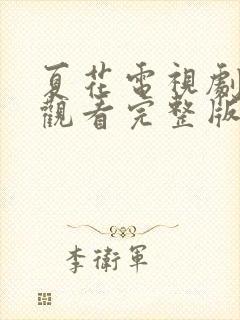 夏花電視劇
觀看完整版
李衛軍